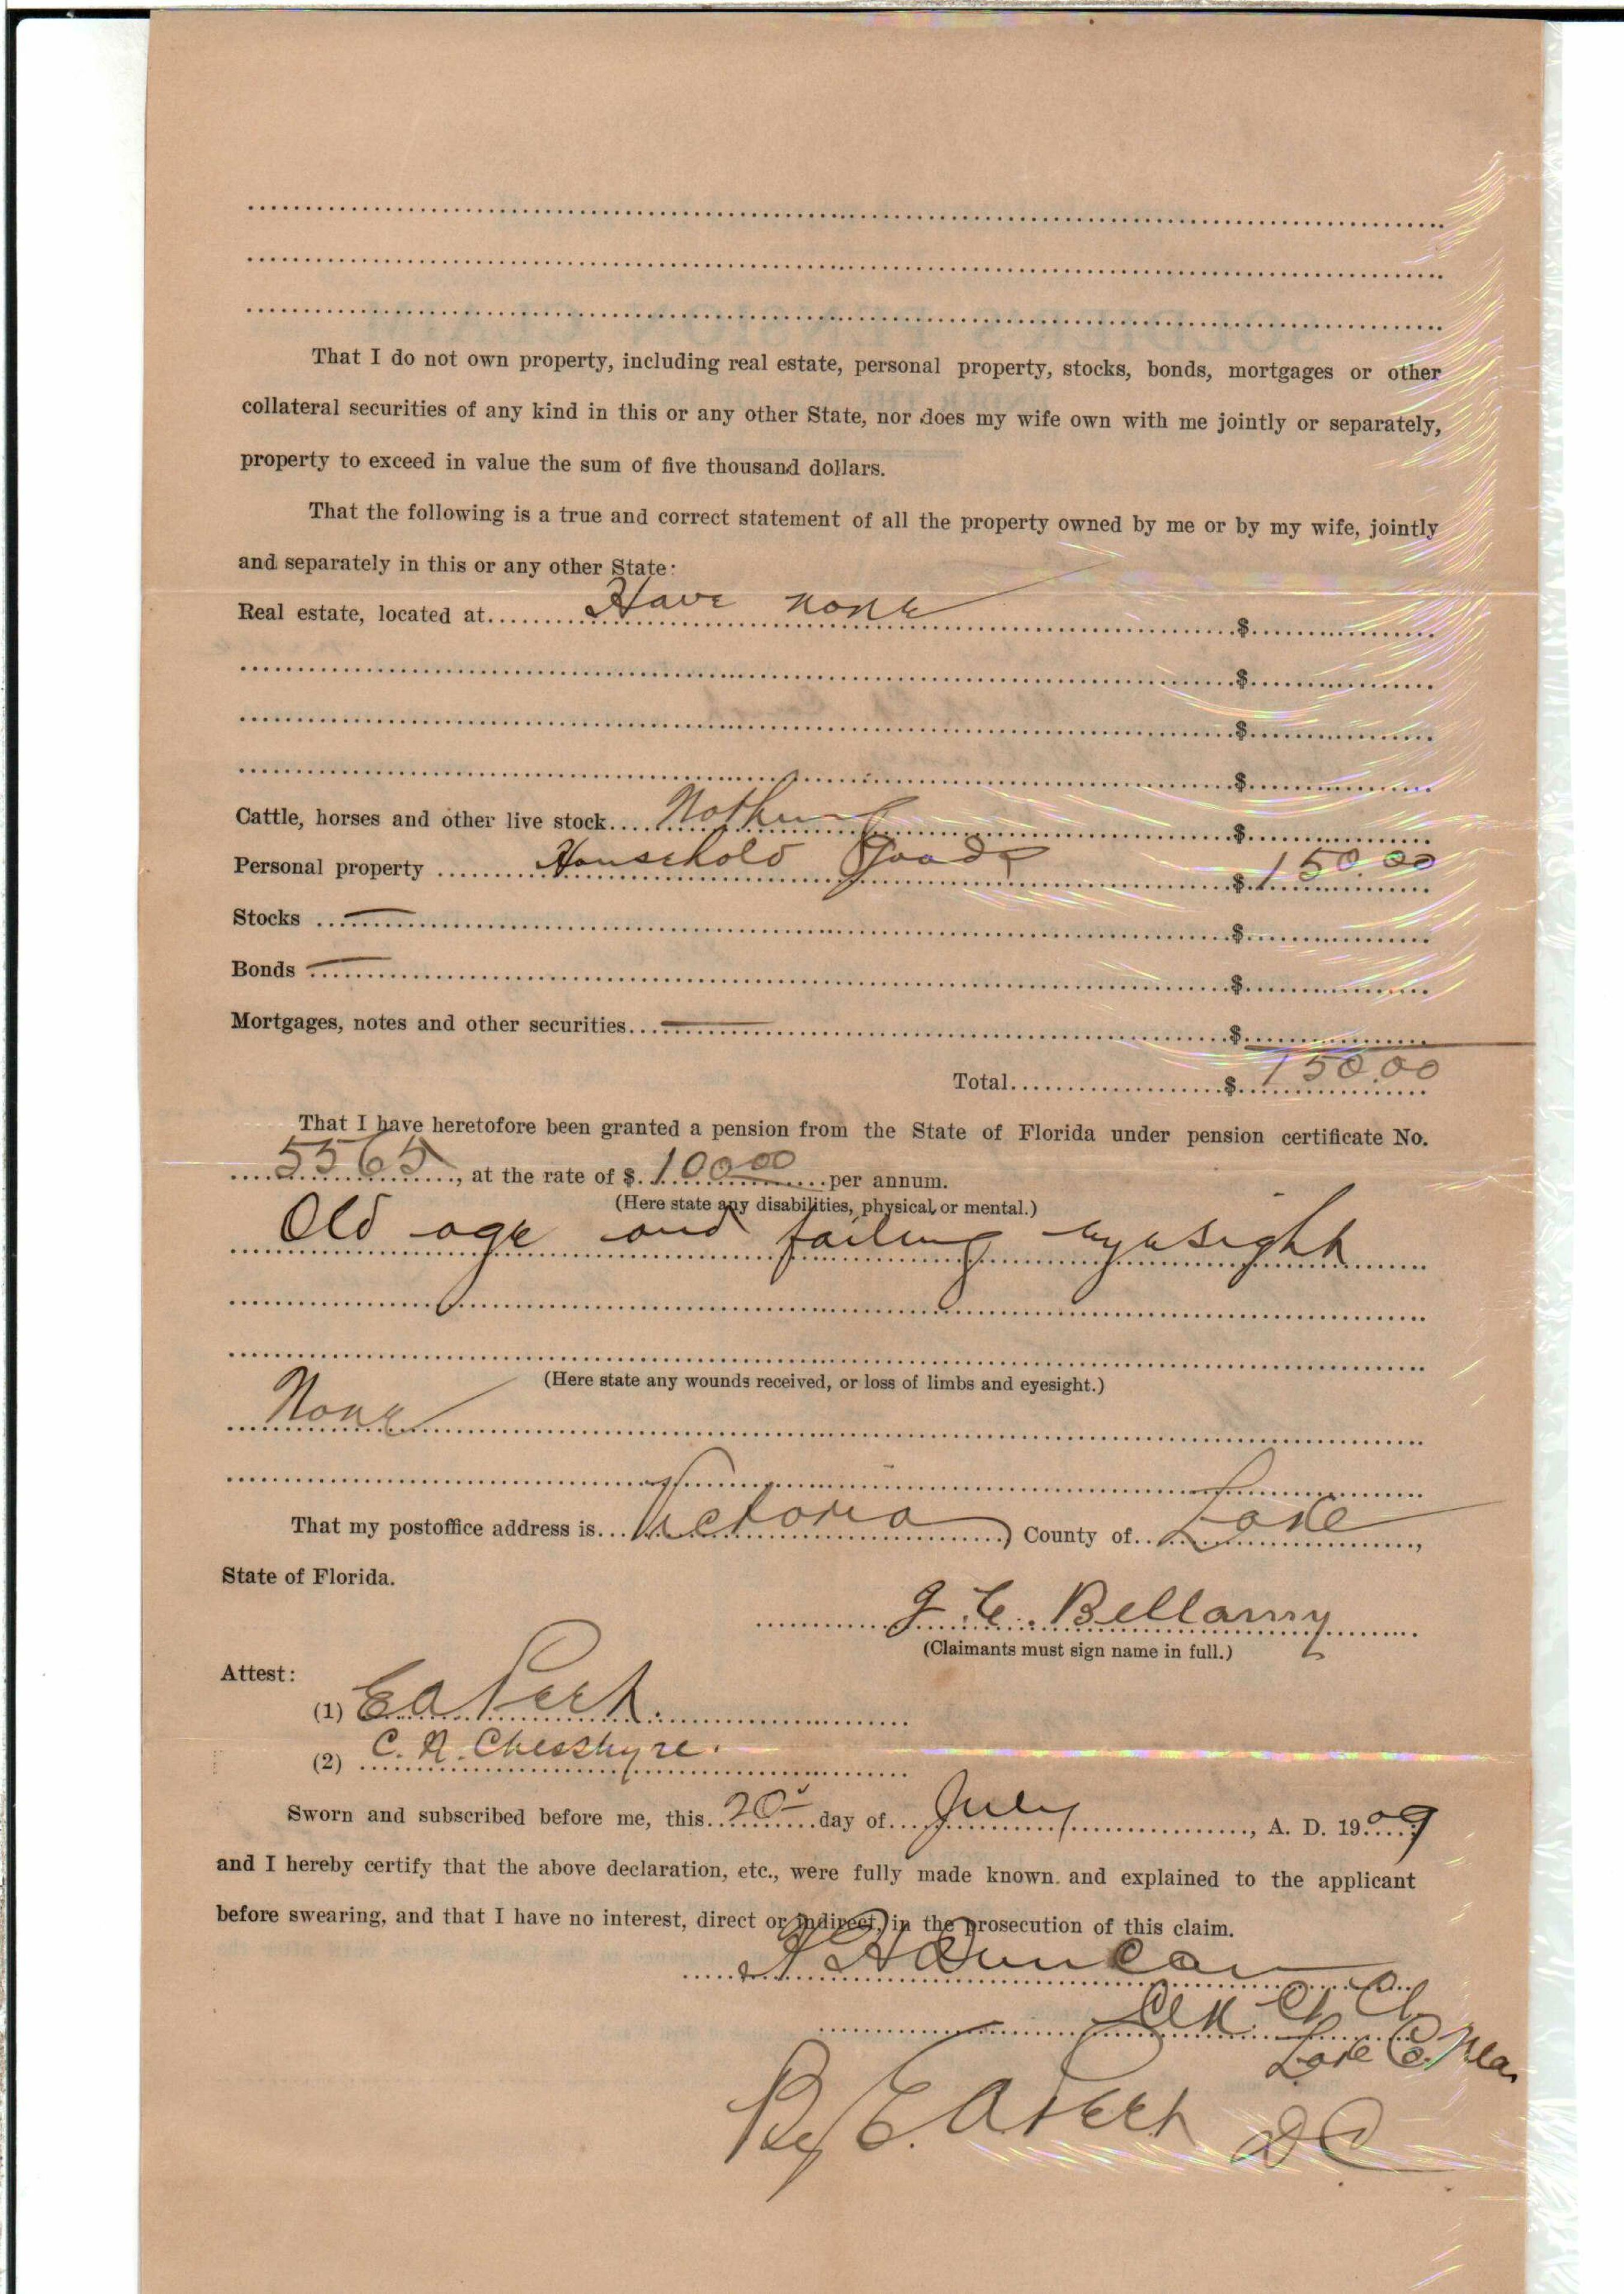 That I do not own property, including real estate, personal property, stocks, bonds, mortgages or other
collateral securities of any kind in this or any other State, nor does my wife own with me jointly or separately,
property to exceed in value the sum of five thousand dollars.
That the following is a true and correct statement of all the property owned by me or by my wife, jointly
and separately in this or any other State:
Real estate, located at Have none $
$
$
$
Cattle, horses and other live stock Nothing $
Personal property Household Goods $150.00
Stocks — $
Bonds — $
Mortgages, notes and other securities — $
Total $150.00
That I have heretofore been granted a pension from the State of Florida under pension certificate No.
5565, at the rate of $100.00 per annum.
(Here state any disabilities, physical or mental.)
Old age and failing eyesight
(Here state any wounds received, or loss of limbs and eyesight.)
None
That my postoffice address is Victoria, County of Lake,
State of Florida.
J. C. Bellamy
(Claimants must sign name in full.)
Attest:
(1) E A Peek
(2) C. N. Chesshyre.
Sworn and subscribed before me, this 20 day of July, A. D. 1909
and I hereby certify that the above declaration, etc., were fully made known. and explained to the applicant
before swearing, and that I have no interest, direct or indirect, in the prosecution of this claim.
H Duncan
Clk. Ct. Ct.
Lake Co. Fla.
By E. A Peek D C